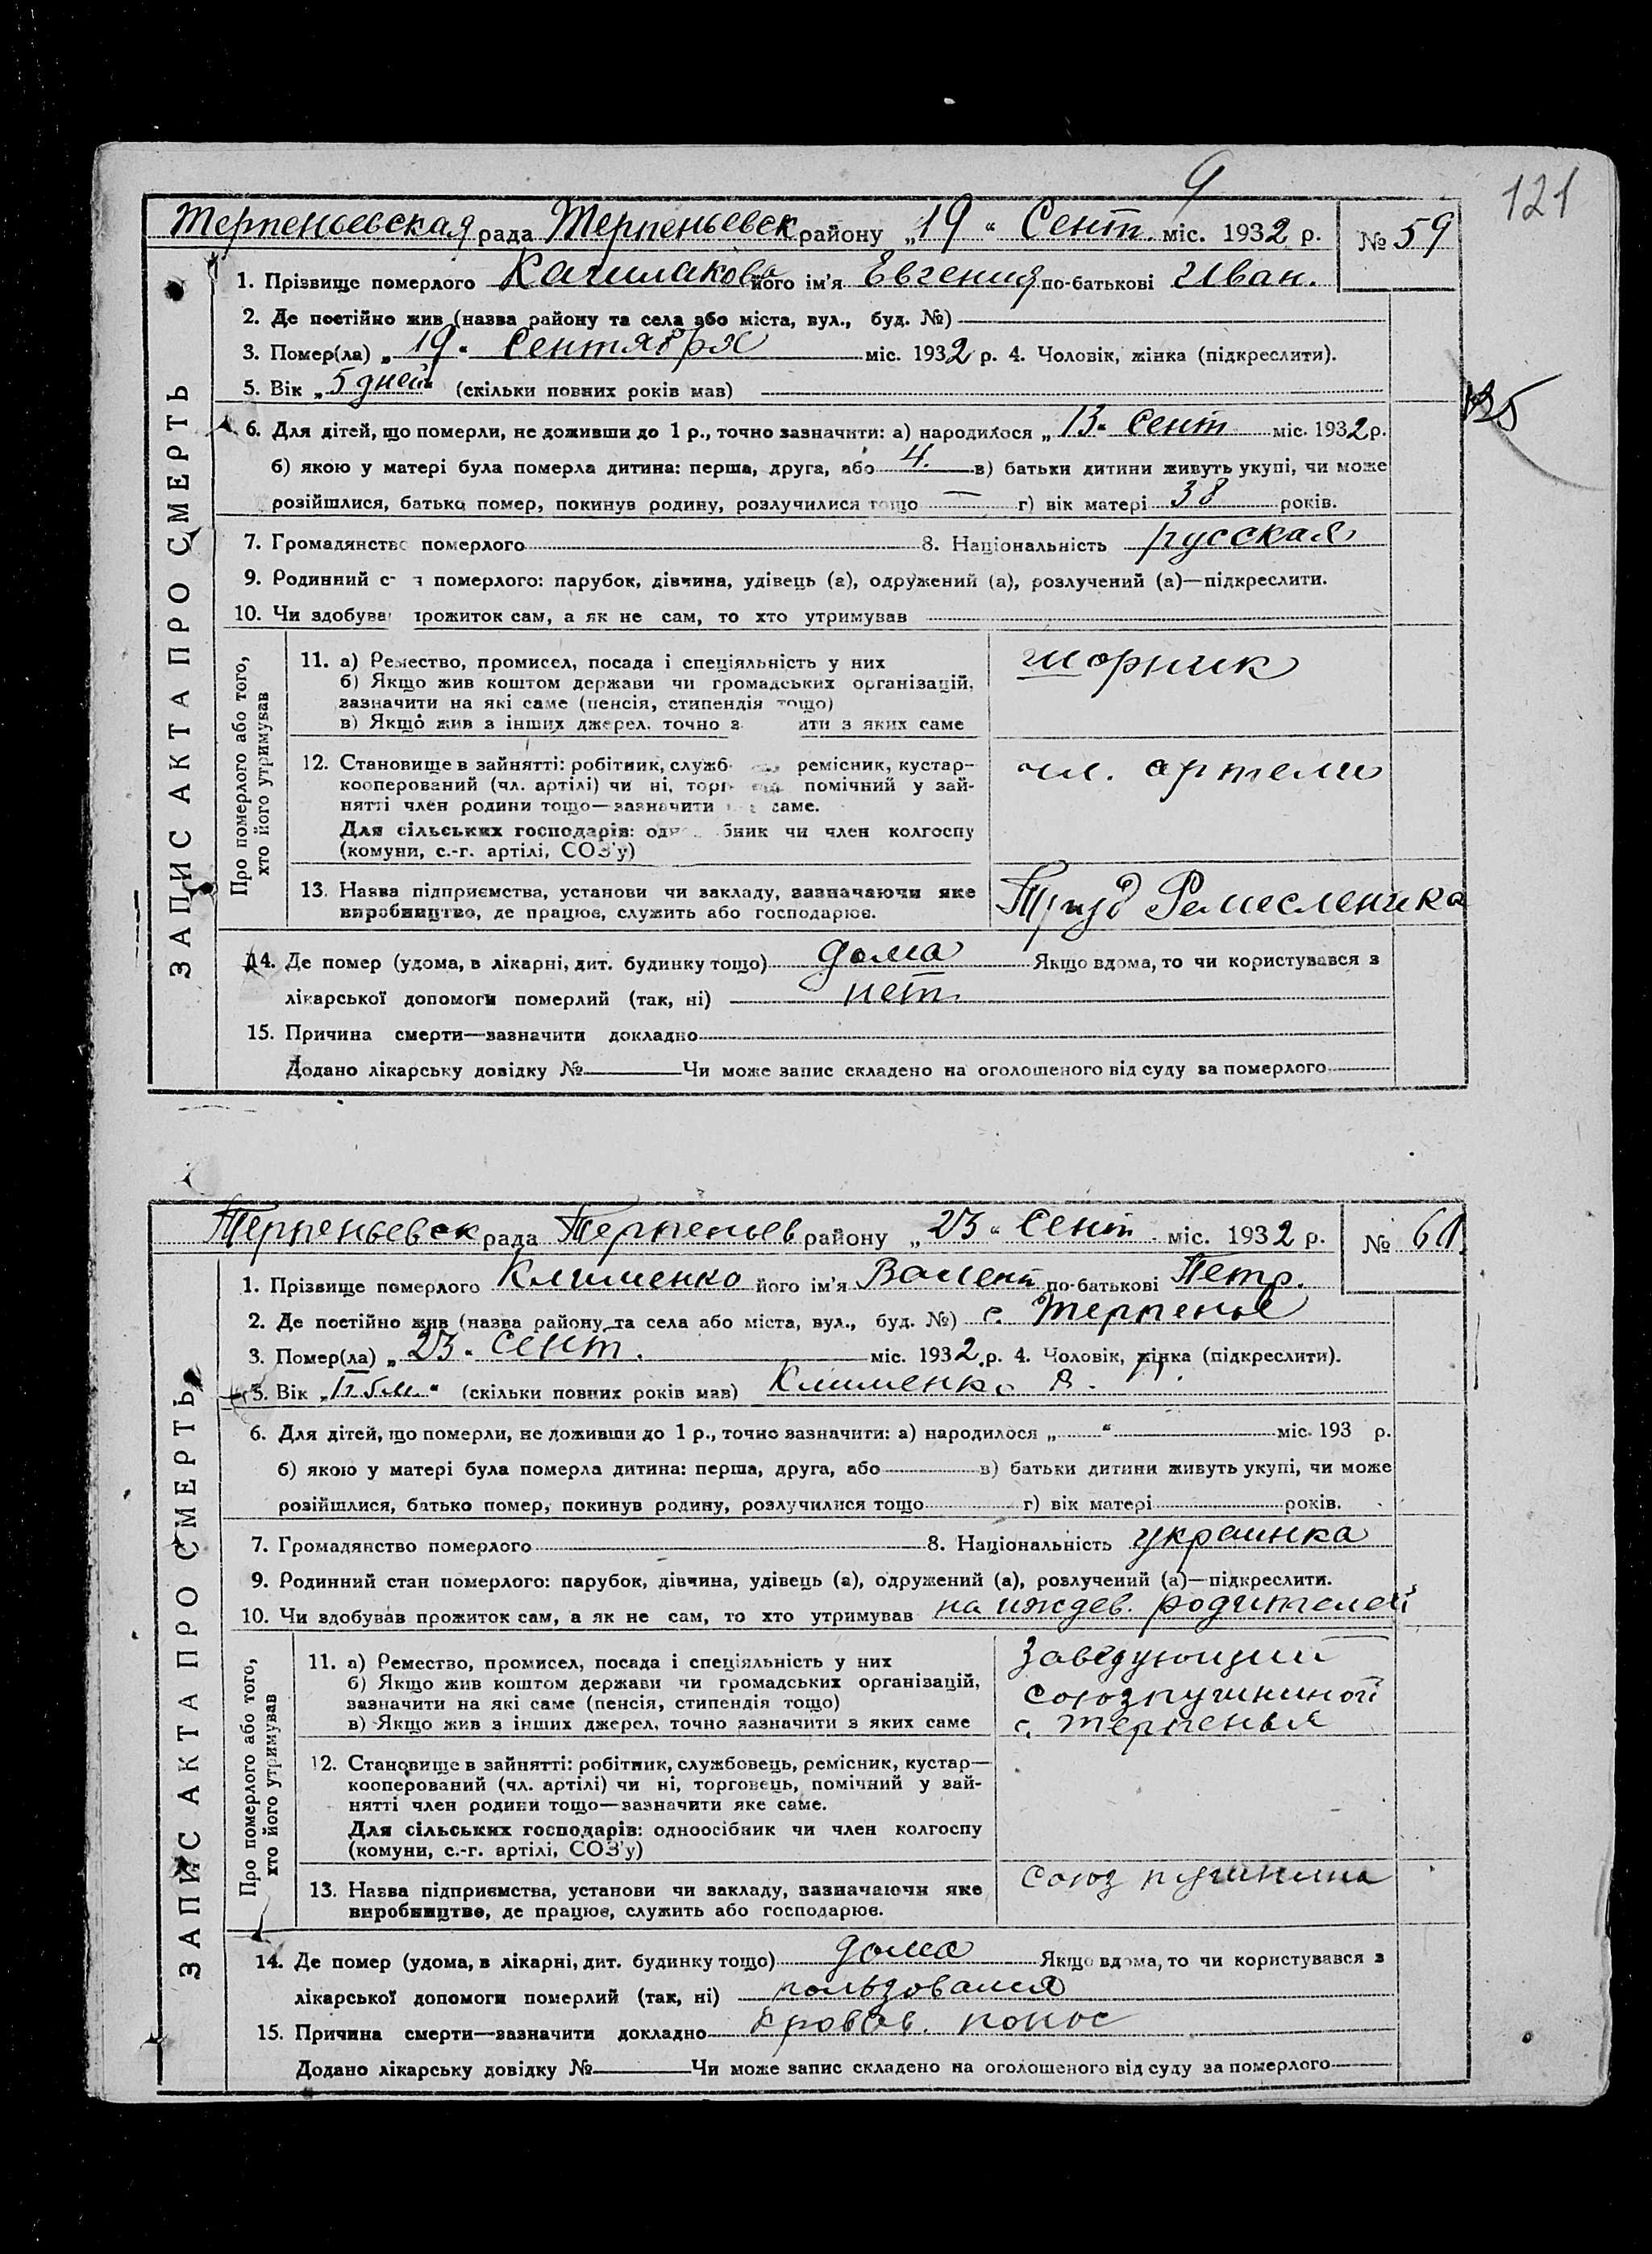 9
121
Терпеньевская рада Терпеньевск району „19“ Сент. міс. 1932 р. № 59
1. Прізвище померлого його ім'я Евгения по-батькові Иван.
2. Де постійно жив (назва району та села або міста, вул., буд. №)
3. Помер(ла) „19“ Сентября міс. 1932 р. 4. Чоловік, жінка (підкреслити).
5. Вік „5 дней“ (скільки повних років мав)
6. Для дітей, що померли, не доживши до 1 р., точно зазначити: а) народилося „13“ Сент міс. 1932 р.
б) якою у матері була померла дитина: перша, друга, або 4. в) батьки дитини живуть укупі, чи може
розійшлися, батько помер, покинув родину, розлучилися тощо — г) вік матері 38 років.
7. Громадянство померлого 8. Національність русская
9. Родинний с я померлого: парубок, дівчина, удівець (а), одружений (а), розлучений (а)—підкреслити.
10. Чи здобува прожиток сам, а як не сам, то хто утримував
ЗАПИС АКТА ПРО СМЕРТЬ
Про померлого або того,
хто його утримував
11. а) Ремество, промисел, посада і спеціяльність у них шорник
б) Якщо жив коштом держави чи громадських організацій,
зазначити на які саме (пенсія, стипендія тощо)
в) Якщо жив з інших джерел, точно з ити з яких саме
12. Становище в зайнятті: робітник, служб ремісник, кустар— чл. артели
кооперований (чл. артілі) чи ні, торг помічний у зай-
нятті член родини тощо—зазначити саме.
Для сільських господарів: одно бник чи член колгоспу
(комуни, с.-г. артілі, СОЗ'у)
13. Назва підприємства, установи чи закладу, зазначаючи яке Труд Ремесленика
виробництво, де працює, служить або господарює.
14. Де помер (удома, в лікарні, дит. будинку тощо) дома Якщо вдома, то чи користувався з
лікарської допомоги померлий (так, ні) нет
15. Причина смерти—зазначити докладно
Додано лікарську довідку № Чи може запис складено на оголошеного від суду за померлого
Терпеньевск рада Терпеньев району „23“ Сент. міс. 1932 р. № 60
1. Прізвище померлого Клименко його ім'я Валент по-батькові Петр.
2. Де постійно жив (назва району та села або міста, вул., буд. №) с. Терпенье
3. Помер(ла) „23“ Сент. міс. 1932 р. 4. Чоловік, жінка (підкреслити).
5. Вік „1г 5м.“ (скільки повних років мав) Клименко В. П.
6. Для дітей, що померли, не доживши до 1 р., точно зазначити: а) народилося „ “ міс. 193 р.
б) якою у матері була померла дитина: перша, друга, або в) батьки дитини живуть укупі, чи може
розійшлися, батько помер, покинув родину, розлучилися тощо г) вік матері років.
7. Громадянство померлого 8. Національність украинка
9. Родинний стан померлого: парубок, дівчина, удівець (а), одружений (а), розлучений (а)—підкреслити.
10. Чи здобував прожиток сам, а як не сам, то хто утримував на иждев. родителей
ЗАПИС АКТА ПРО СМЕРТЬ
Про померлого або того,
хто його утримував
11. а) Ремество, промисел, посада і спеціяльність у них Заведующий
б) Якщо жив коштом держави чи громадських організацій, союзпушниной
зазначити на які саме (пенсія, стипендія тощо) с. Терпенья
в) Якщо жив з інших джерел, точно зазначити з яких саме
12. Становище в зайнятті: робітник, службовець, ремісник, кустар—
кооперований (чл. артілі) чи ні, торговець, помічний у зай-
нятті член родини тощо—зазначити яке саме.
Для сільських господарів: одноосібник чи член колгоспу
(комуни, с.-г. артілі, СОЗ'у)
13. Назва підприємства, установи чи закладу, зазначаючи яке Союз пушнина
виробництво, де працює, служить або господарює.
14. Де помер (удома, в лікарні, дит. будинку тощо) дома Якщо вдома, то чи користувався з
лікарської допомоги померлий (так, ні) пользовался
15. Причина смерти—зазначити докладно Кровав. понос
Додано лікарську довідку № Чи може запис складено на оголошеного від суду за померлого